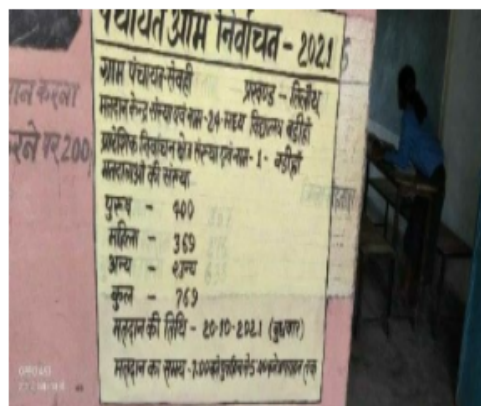 पंचायत आम निर्वाचन - 2021
ग्राम पंचायत-सेवही
प्रखण्ड -
मतदान केन्द्र संख्या एवं नाम-24-मध्य विद्यालय बड़ीहाँ
प्रादेशिक निर्वाचन क्षेत्र संख्या एवं नाम-1-
मतदाताओं की संख्या
पुरुष - 400
महिला - 369
अन्य - शून्य
कुल - 769
मतदान की तिथि - 20-10-2021 (बुधवार)
मतदान का समय -7.00 बजे
करना
रने पर 200